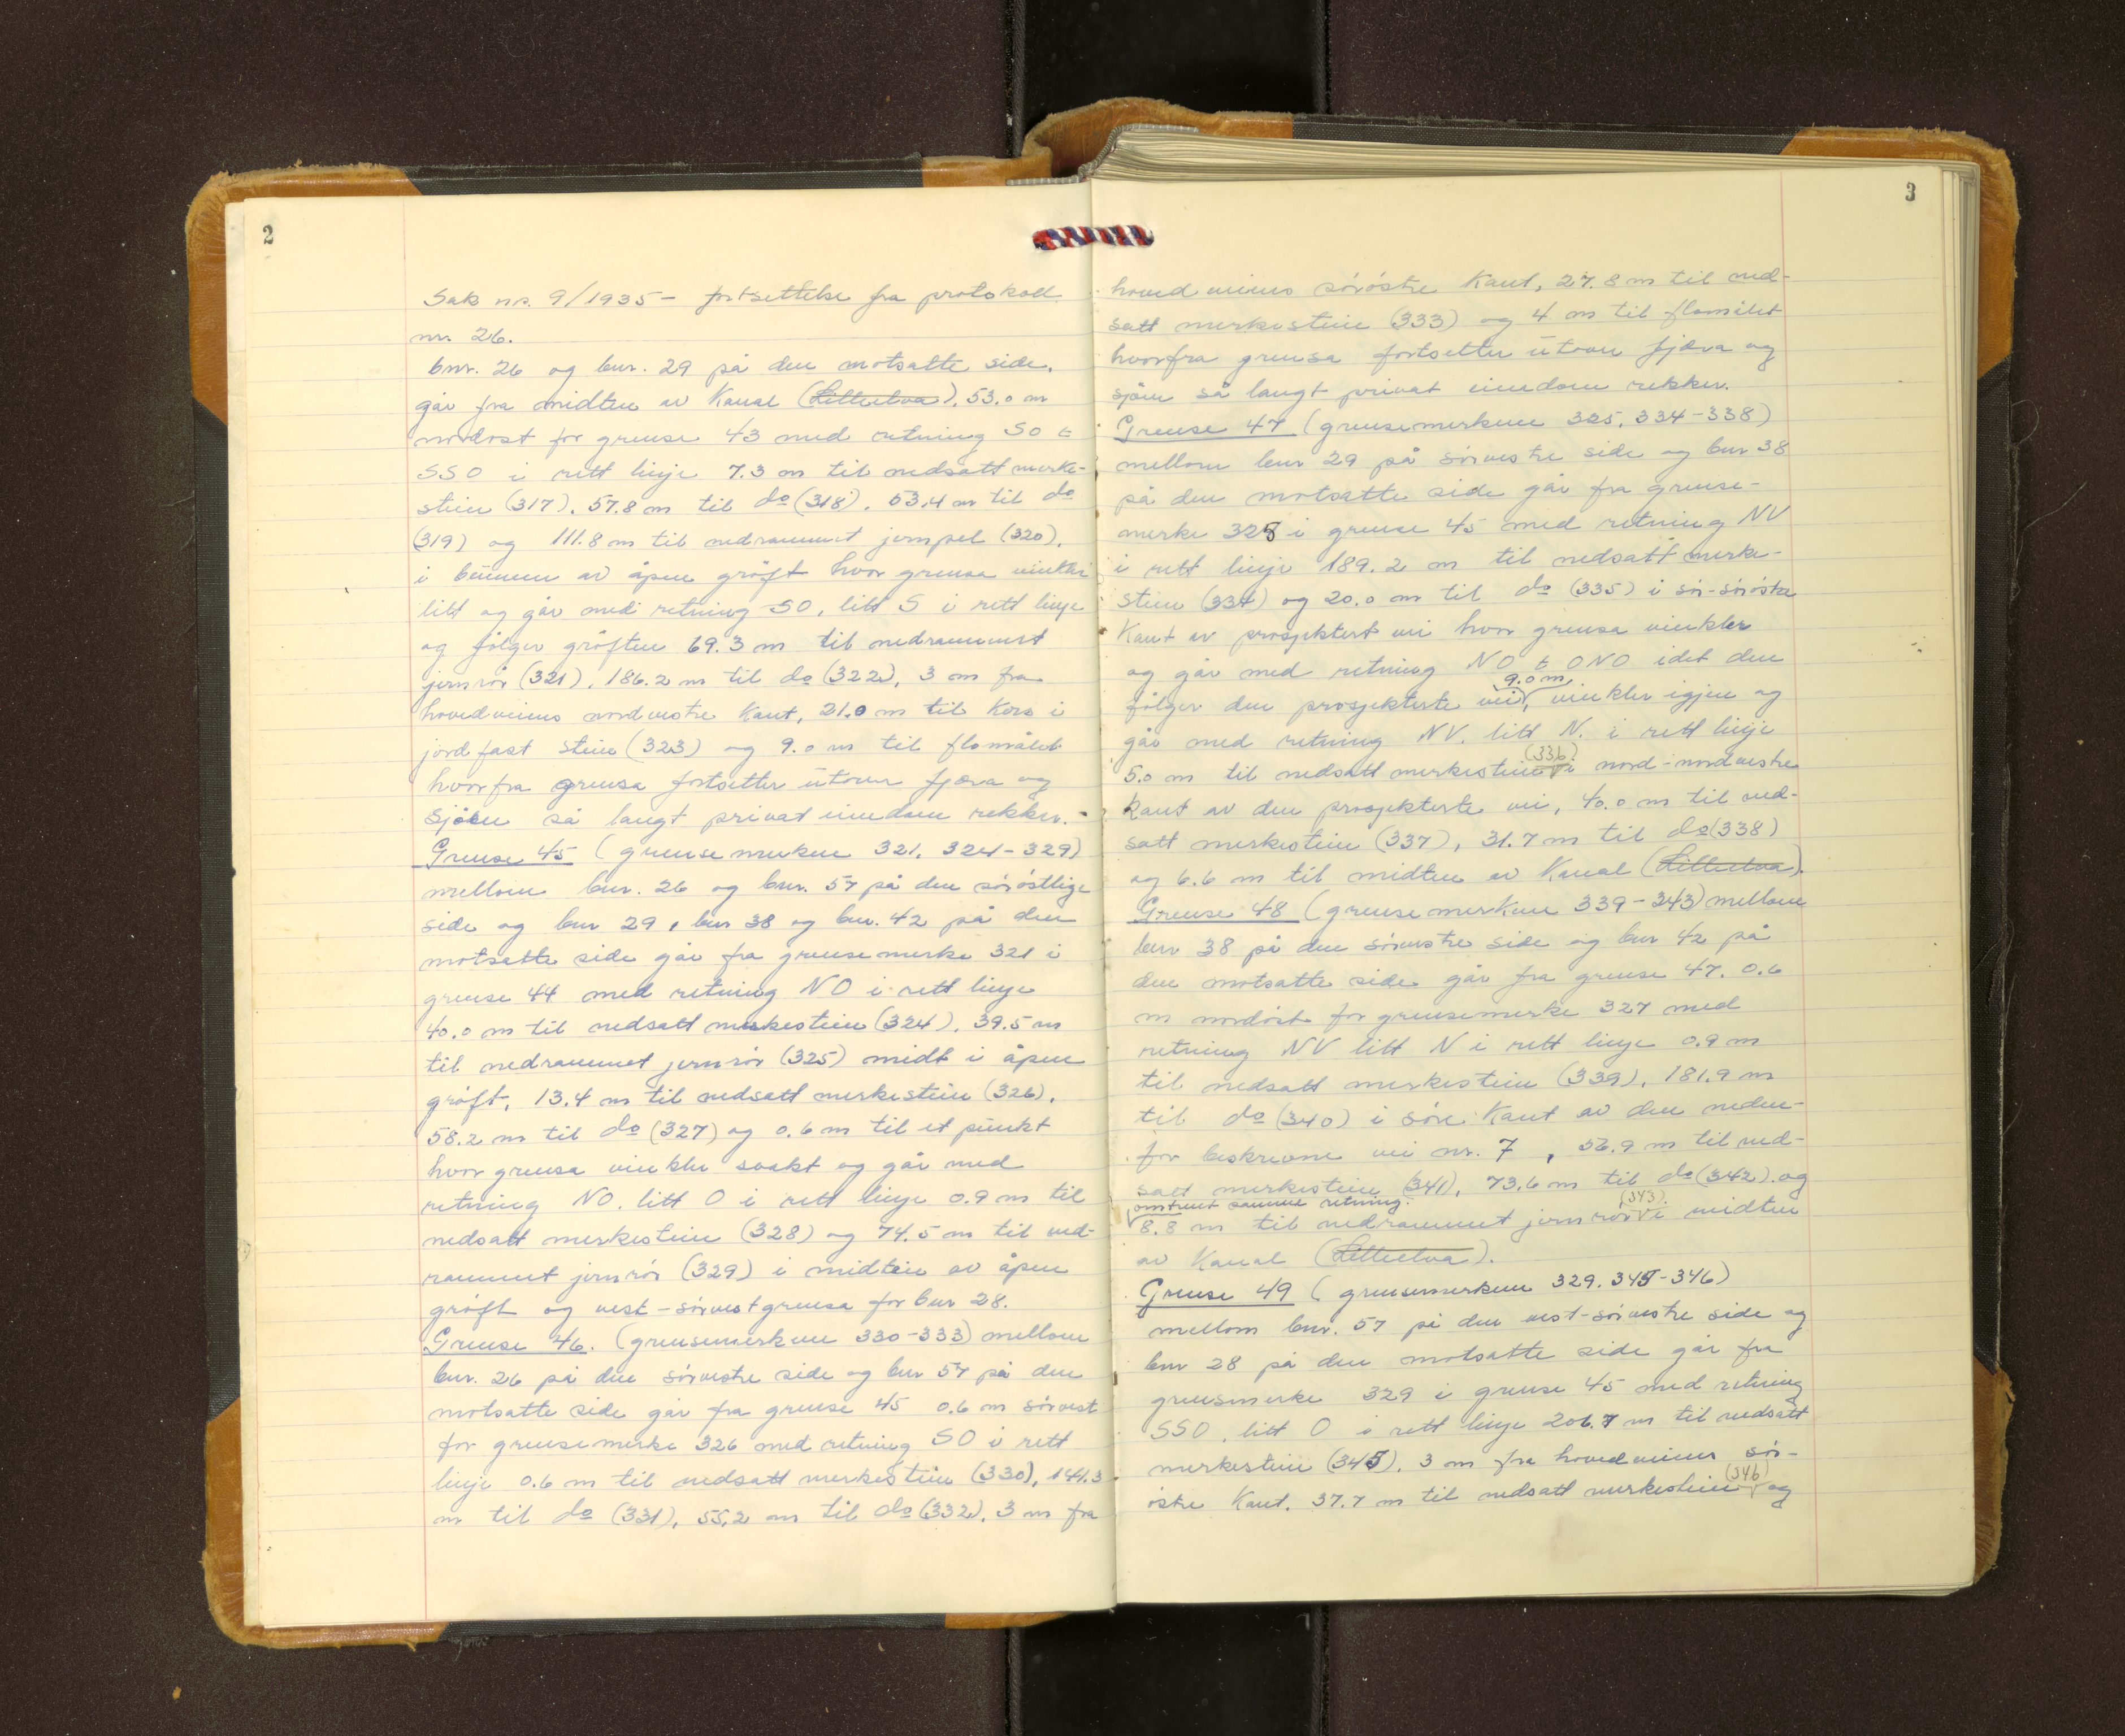 2
Sak nr. 9/1935 - fortsettelse fra protokoll
nr. 26.
bnr. 26 og bnr. 29 på den motsatte side,
går fra midten av Kanal (Litleelva), 53.0 m
nordøst for grense 43 med retning SO t
SSO i rett linje 7.3 m til nedsatt merke-
stein (317), 57.8 m til do (318), 53.4 m til do
(319) og 111.8 m til nedrammet jernpel (320),
i bunnen av åpen grøft hvor grensa vinkler
litt og går med retning SO, litt S i rett linje
og følger grøften 69.3 m til nedrammet
jernrör (321), 186.2 m til do (322), 3 m fra
hovedveiens nordvestre Kant, 21.0 m til Kors i
jordfast stein (323) og 9.0 m til flomålet
hvorfra grensa fortsetter utover fjæra og
sjøen så langt privat eiendom rekker.-
Grense 45 (grensemerkene 321, 324-329)
mellom bnr. 26 og bnr. 57 på den sörøstlige
side og bnr 29, bnr 38 og bnr. 42 på den
motsatte side går fra grensemerke 321 i
grense 44 med retning NO i rett linje
40.0 m til nedsatt merkestein (324), 39.5 m
til nedrammet jernrör (325) midt i åpen
grøft, 13.4 m til nedsatt merkestein (326),
58.2 m til do (327) og 0.6 m til et punkt
hvor grensa vinkler svakt og går med
retning NO, litt O i rett linje 0.9 m til
nedsatt merkestein (328) og 74.5 m til ned-
rammet jernrör (329) i midten av åpen
grøft og vest-sörvestgrensa for bnr 28.
Grense 46. (grensemerkene 330-333) mellom
bnr. 26 på den sörvestre side og bnr 57 på den
motsatte side går fra grense 45 0.6 m sörvest
for grensemerke 326 med retning SO i rett
linje 0.6 m til nedsatt merkestein (330), 141.3
m til do (331), 55.2 m til do (332), 3 m fra
3
hovedveiens söröstre Kant, 27.8 m til ned-
satt merkestein (333) og 4 m til flomålet
hvorfra grensa fortsetter utover fjæra og
sjøen så langt privat eiendom rekker.
Grense 47 (grensemerkene 325, 334-338)
mellom bnr 29 på sörvestre side og bnr 38
på den motsatte side går fra grense-
merke 325 i grense 45 med retning NV
i rett linje 189.2 m til nedsatt merke-
stein (334) og 20.0 m til do (335) i sör-söröstre
Kant av prosjektert vei hvor grensa vinkler
og går med retning NO t ONO idet den
følger den prosjekterte vei, 9.0 m, vinkler igjen og
går med retning NV. litt N. i rett linje
5.0 m til nedsatt merkestein (336) i nord-nordvestre
kant av den prosjekterte vei, 40.0 m til ned-
satt merkestein (337), 31.7 m til do (338)
og 6.6 m til midten av Kanal (Litleelva).
Grense 48 (grensemerkene 339-343) mellom
bnr 38 på den sörvestre side og bnr 42 på
den motsatte side går fra grense 47. 0.6
m nordöst for grensemerke 327 med
retning NV litt N i rett linje 0.9 m
til nedsatt merkestein (339), 181.9 m
til do (340) i söre Kant av den neden-
for beskrevne vei nr. 7, 56.9 m til ned-
satt merkestein (341), 73.6 m til do (342) og
omtrent samme retning
8.8 m til nedrammet jernrör (343) i midten
av Kanal (Litleelva).
Grense 49 (grensemerkene 329, 345-346)
mellom bnr. 57 på den vest-sörvestre side og
bnr 28 på den motsatte side går fra
grensmerke 329 i grense 45 med retning
SSO, litt O i rett linje 206.7 m til nedsatt
merkestein (345), 3 m fra hovedveiens sör-
östre Kant, 37.7 m til nedsatt merkestein (346) og